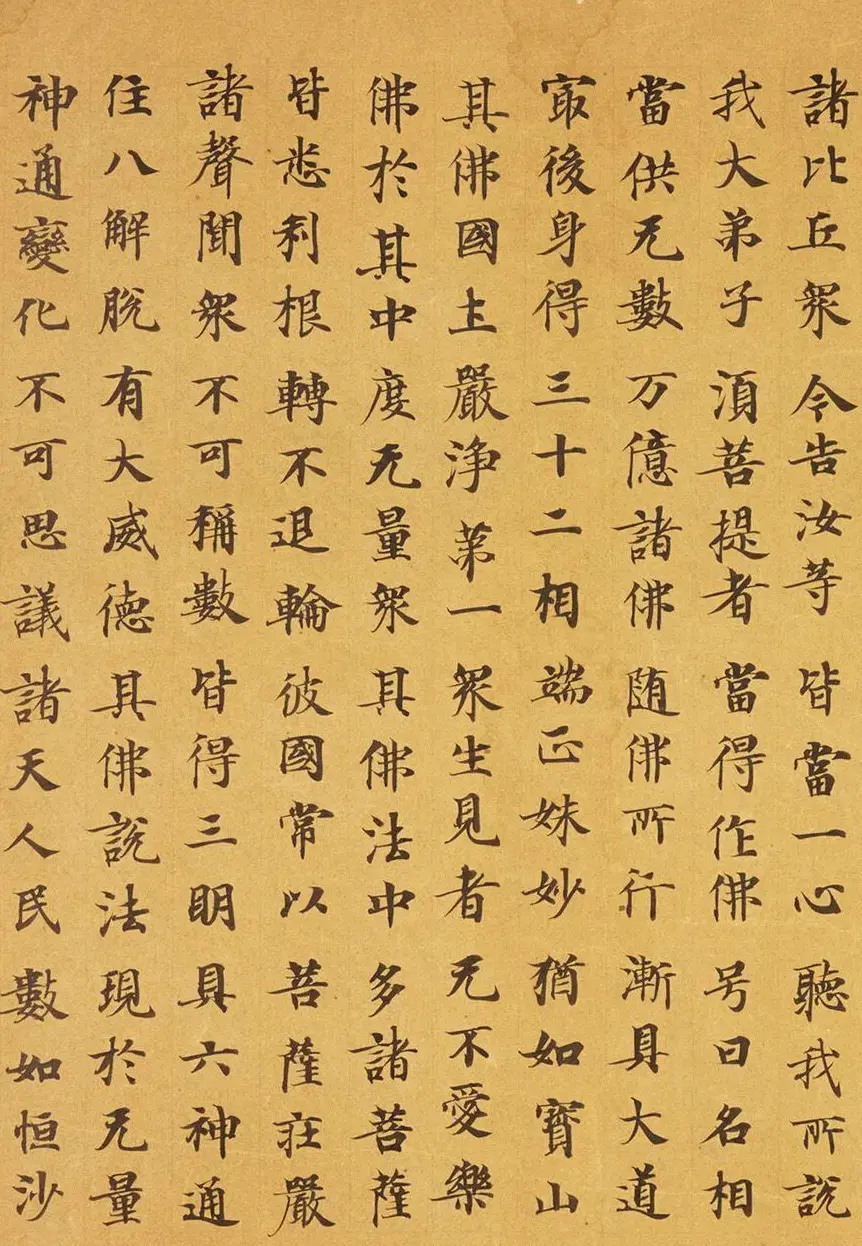 諸比丘衆今告汝等皆當一心聽我所說
我大弟子湏菩提者當得作佛号曰名相
當供无數万億諸佛随佛所行漸具大道
㝡後身得三十二相端正姝妙猶如寶山
其佛國土嚴淨苐一衆生見者无不愛樂
佛於其中度无量衆其佛法中多諸菩薩
皆悉利根轉不退輪彼國常以菩薩莊嚴
諸聲聞衆不可稱數皆得三明具六神通
住八解脫有大威德其佛說法現於无量
神通變化不可思議諸天人民數如恒沙